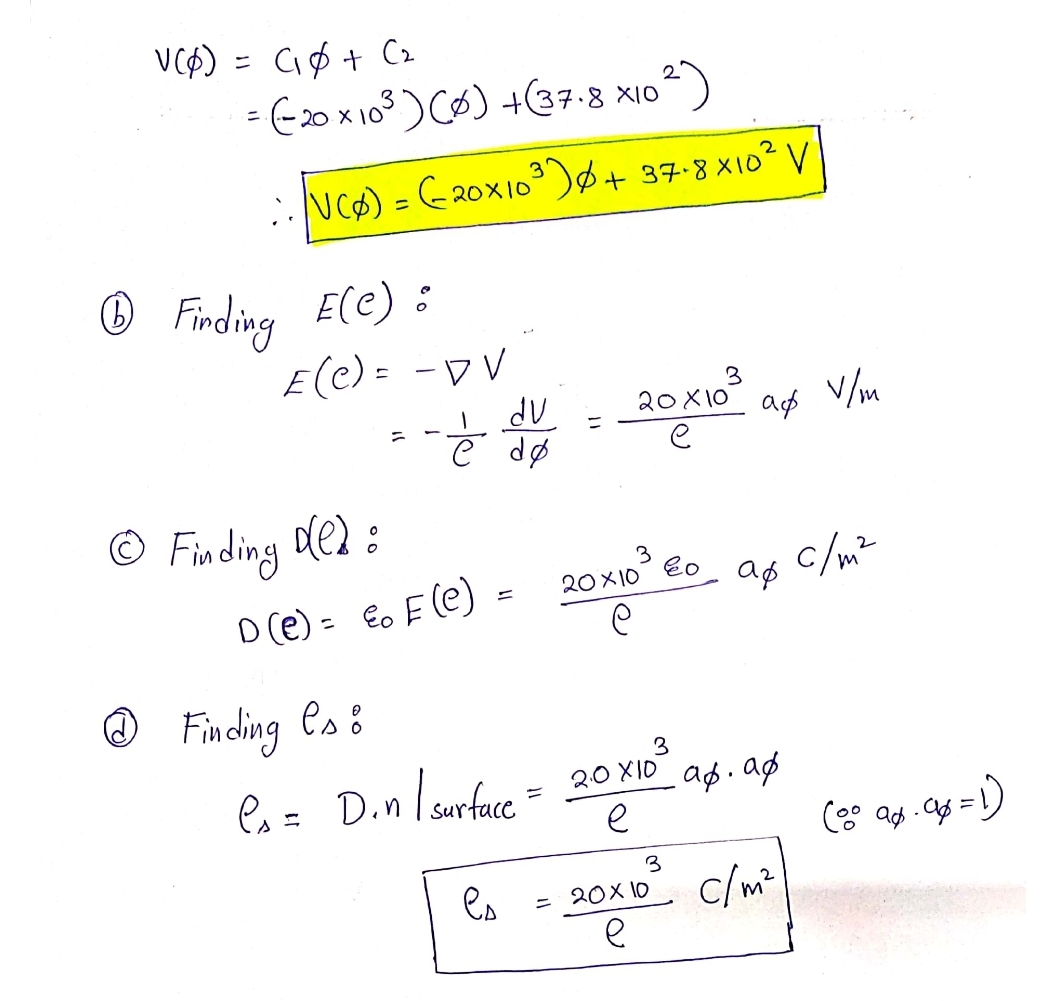 V(φ) = C1φ + C2
= (-20 × 10³)(φ) + (37.8 × 10²)
∴ V(φ) = (-20×10³)φ + 37.8 × 10² V
ⓑ Finding E(ρ) :
E(ρ) = -∇V
= - 1/ρ dV/dφ = 20×10³/ρ aφ V/m
ⓒ Finding D(ρ) :
D(ρ) = ε0 E(ρ) = 20×10³ ε0/ρ aφ C/m²
ⓓ Finding ρs :
ρs = D.n | surface = 20×10³/ρ aφ . aφ (∵ aφ . aφ = 1)
ρs = 20×10³/ρ C/m²